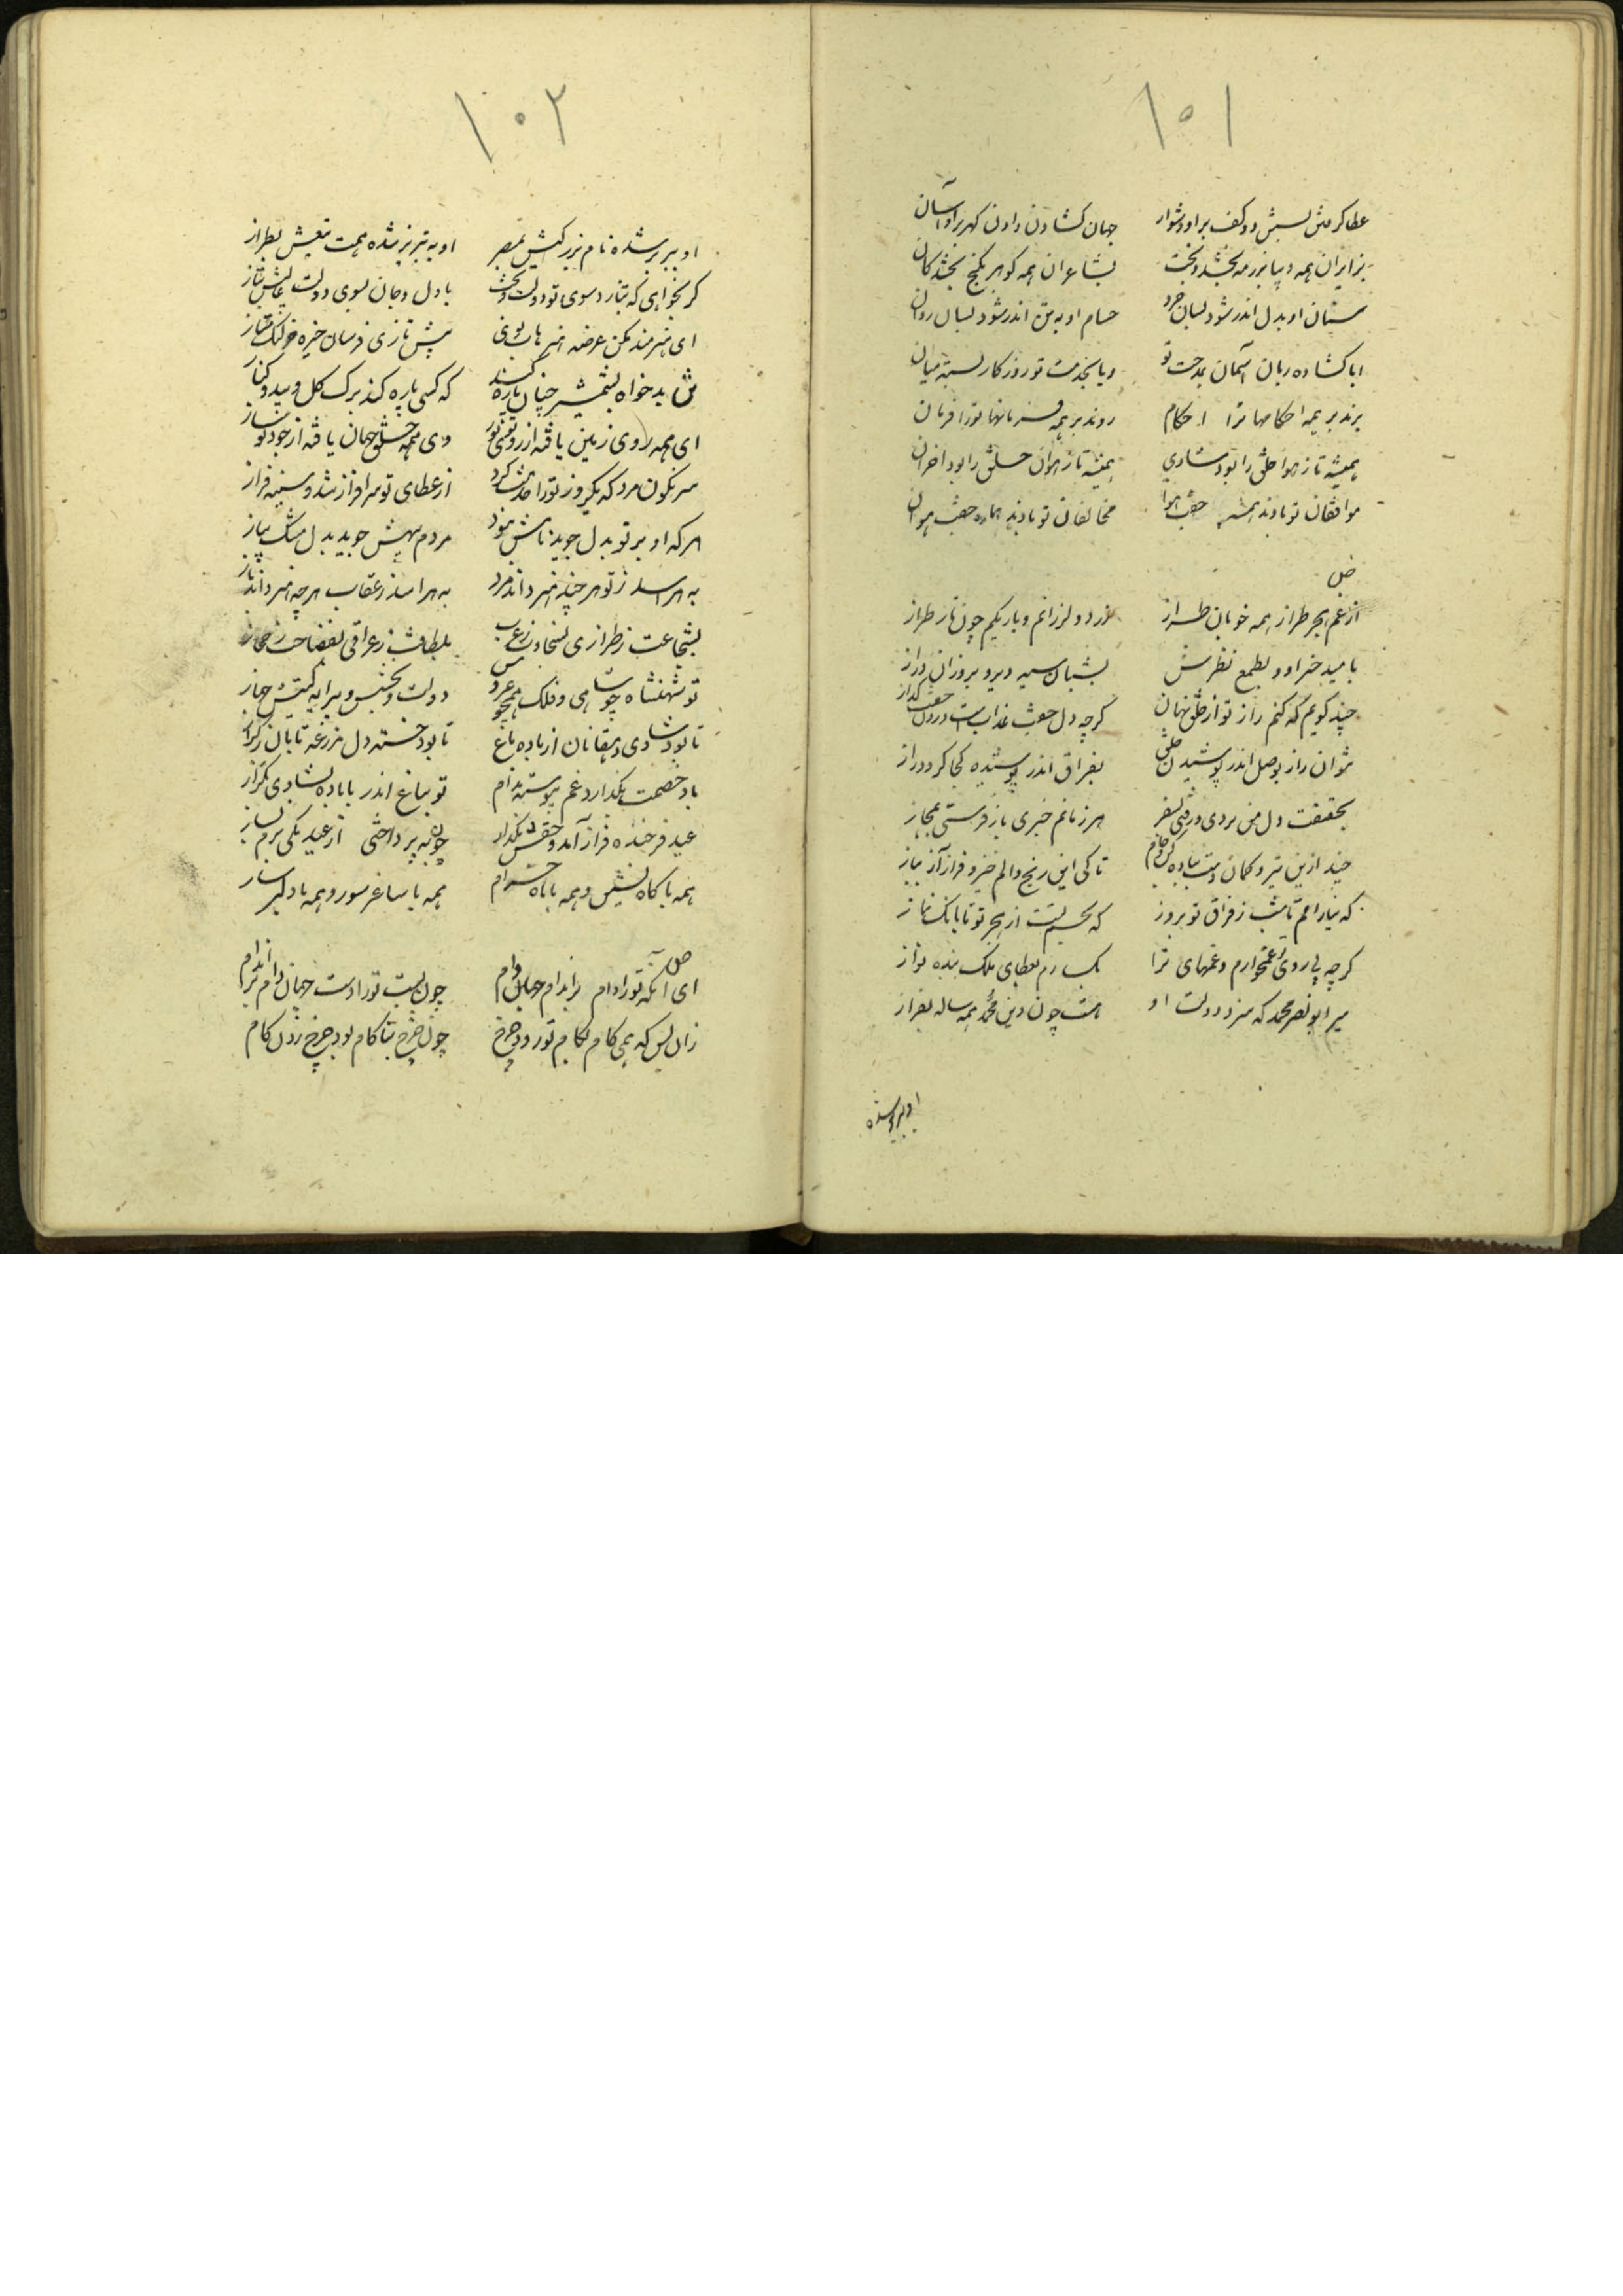 ۱۰۱
عطا گرفتن بسش دو کف بر او دشوار جهان گشادن و دادن گهر بر او آسان
بزایران همه دیبا بزرمه بخشد و تخت بشاعران همه گوهر بگنج بخشد و کان
سنان او بدل اندر شود بسان خرد حسام او بتن اندر شود بسان روان
ابا گشاده زبان آسمان بمدحت تو و یا بخدمت تو روزگار بسته میان
برند بر همه احکامها ترا احکام روند بر همه فرمانها تو را فرمان
همیشه تا ز هوا خلق را بود شادی همیشه تا ز هوان خلق را بود احزان
موافقان تو بادند همیشه جفت هوا مخالفان تو بادند هماره جفت هوان
از غم هجر طراز همه خوبان طراز زرد و لرزانم و باریکم چون تار طراز
بامید خبر او و بطمع نظرش بشبان سیه دیر و بروزان دراز
چند گویم که کنم راز تو از خلق نهان گرچه دل جفت عذابست و روان جفت گداز
نتوان راز بوصل اندر پوشیدن خلق بفراق اندر پوشیده کجا گردد راز
بحقیقت دل من بردی و رفتی بسفر هر زمانم خبری باز فرستی بمجاز
چند ازین تیر و کمان دست بباده کن و جام تا کی این رنج و الم خیز و فراز آی بباز
که نیارامم تا شب ز فراق تو بروز که نخسبم بشب از هجر تو تا بانگ نماز
گرچه بی روی تو غمخوارم و غمهای ترا بگسارم بعطای ملک بنده نواز
میر ابونصر محمد که سزد دولت او هست چون دین محمد همه ساله بفراز
او ببربر شده
۱۰۲
او ببربر شده نام بزرگیش بمصر او به تبریز شده همت تیغش بطراز
گر بخواهی که بتازد سوی تو دولت و بخت با دل و جان بسوی دولت عالیش بتاز
ای هنرمند مکن عرضه هنرهات بوی پیش تازی فرسان خیره خر لنگ متاز
تن بدخواه بشمشیر چنان پاره کند که کسی پاره کند برگ گل و بید و کنار
ای همه روی زمین یافته از روی تو نور وی همه خلق جهان یافته از جود تو ساز
سرنگون مرد که یکروز تو را خدمت کرد از عطای تو سرافراز شد و سینه فراز
هر که او بر تو بدل جوید نامش نبود مردم بیهش جوید بدل مشک پیاز
به هراسد ز تو هر چند هنر داند مرد به هراسد ز عقاب هر چه هنر داند باز
بشجاعت ز طرازی بسخاوت ز عرب بلطافت ز عراقی بفصاحت ز حجاز
تو شهنشاه چو شامی و فلک همچو عروس دولت و بختش و پیرایه گیتیش جهاز
تا بود شادی دهقانان از باده باغ تا بود خسته دل مزرعه تابان ز گراز
باد خصمت بگداز و غم پیوسته مدام تو بباغ اندر با باده بشادی بگراز
عید فرخنده فراز آمد و حقش بگذار چون بپرداختی از عید یکی بزم بساز
همه با گاه نشین و همه با ماه خرام همه با ساغر سور و همه با دلبر ساز
ای آنکه تو را دام برابدام جهان وام چون بست تو را دست جهان دام براندام
زان پس که همی کام بکام تو رود چرخ چون چرخ بناکام بود چرخ زدن کام